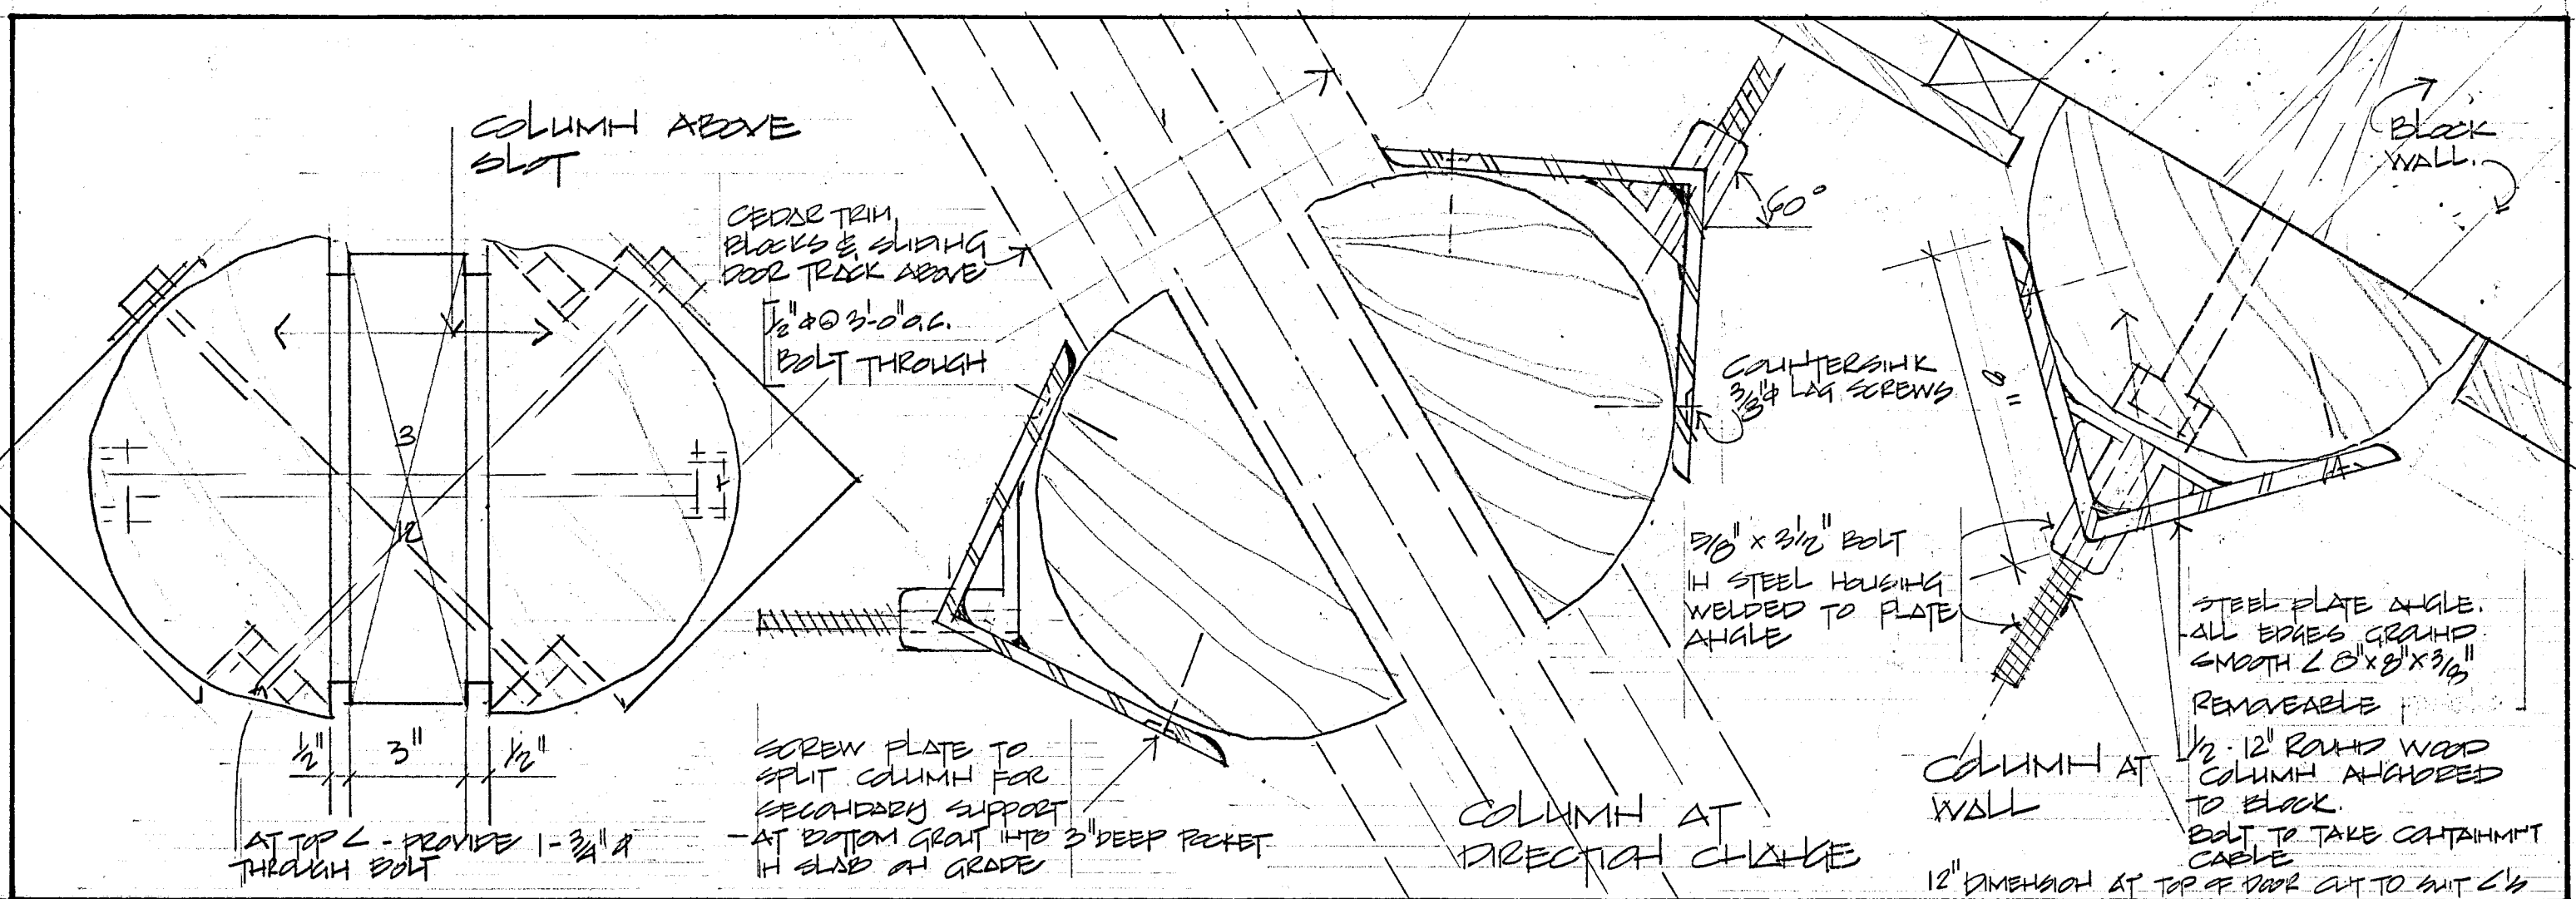 COLUMN ABOVE
SLOT
CEDAR TRIM,
BLOCKS & SLIDING
DOOR TRACK ABOVE
1/2" ϕ @ 3'-0" O.C.
BOLT THROUGH
3
12
1/2"
3"
1/2"
AT TOP ∠ - PROVIDE 1-3/4" ϕ
THROUGH BOLT
SCREW PLATE TO
SPLIT COLUMN FOR
SECONDARY SUPPORT
- AT BOTTOM GROUT INTO 3" DEEP POCKET
IN SLAB ON GRADE
60°
COUNTERSINK
3/8" ϕ LAG SCREWS
COLUMN AT
DIRECTION CHANGE
5/8" x 3 1/2" BOLT
IN STEEL HOUSING
WELDED TO PLATE
ANGLE
8"
BLOCK
WALL.
STEEL PLATE ANGLE.
- ALL EDGES GROUND
SMOOTH ∠ 8" x 8" x 3/8"
REMOVEABLE
1/2 - 12" ROUND WOOD
COLUMN ANCHORED
TO BLOCK.
BOLT TO TAKE CONTAINMNT
CABLE
COLUMN AT
WALL
12" DIMENSION AT TOP OF DOOR CUT TO SUIT ∠'S